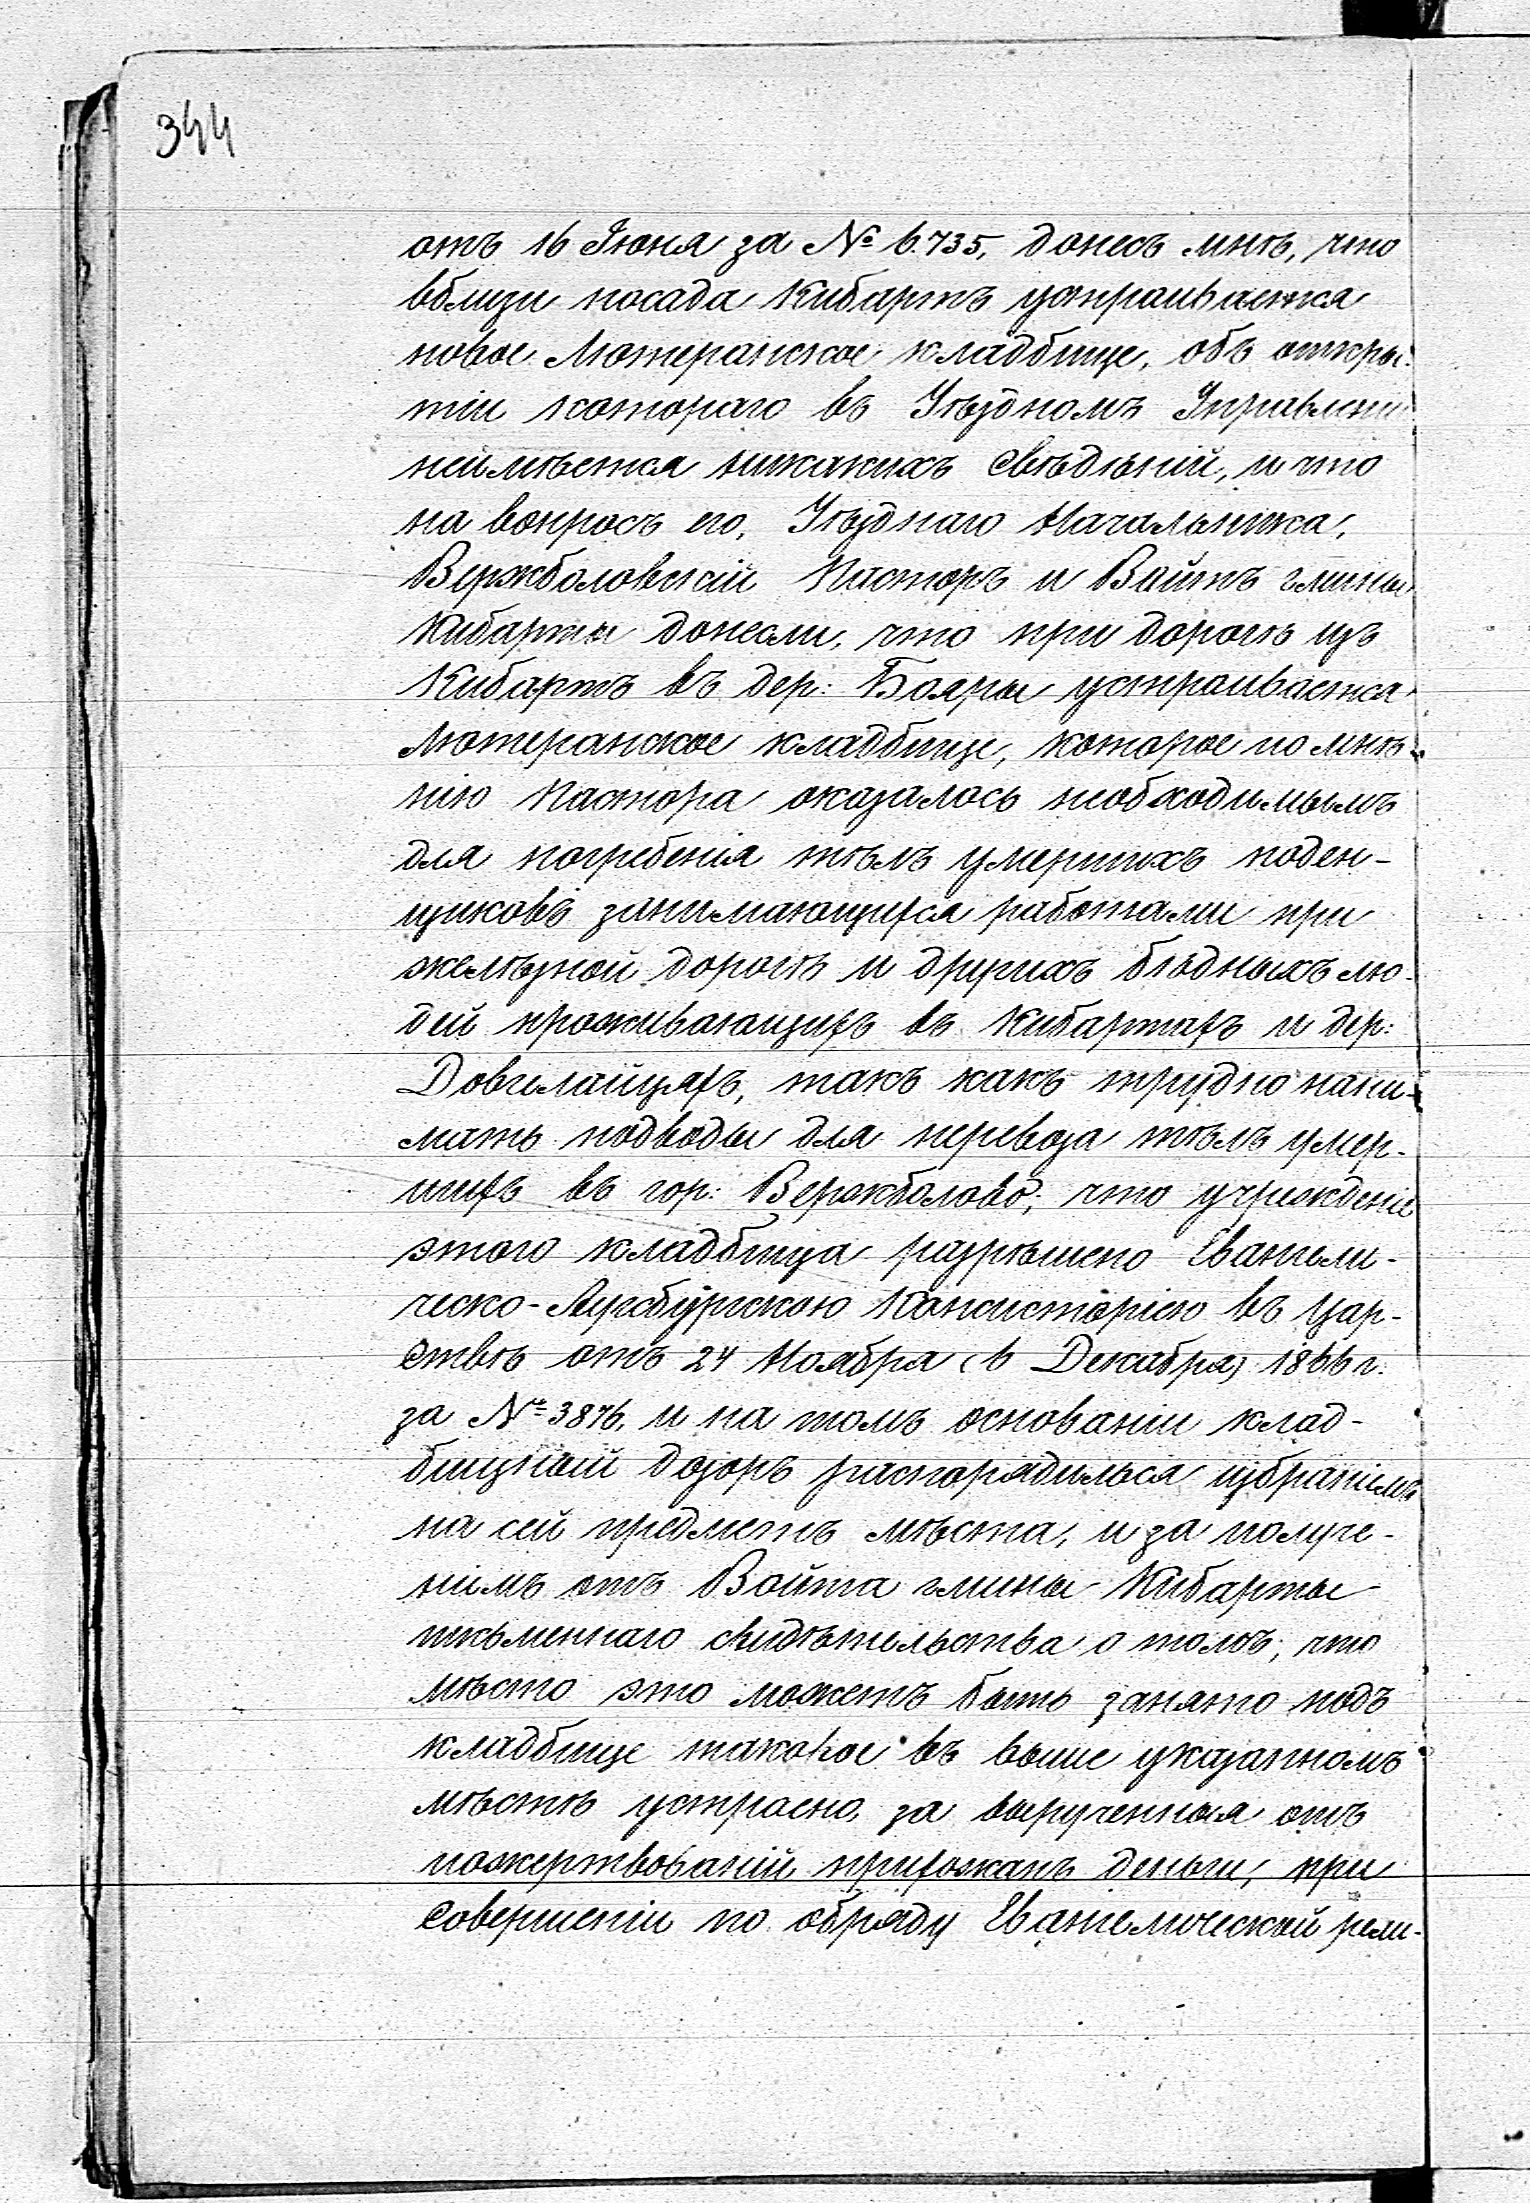 344
отъ 16 Іюня за № 6.735, донесъ мнѣ, что
вблизи посада Кибартъ устраивается
новое Лютеранское кладбище, объ откры-
тіи котораго въ Уѣздномъ Управленіи
неимѣется никакихъ свѣдѣній, и что
на вопросъ его, Уѣзднаго Начальника,
Вержболовскій Пасторъ и Войтъ гмины
Кибарты донесли, что при дорогѣ изъ
Кибартъ въ дер: Бояры устраивается
Лютеранское кладбище, которое по мнѣ-
нію Пастора оказалось необходимымъ
для погребенія тѣлъ умершихъ поден-
щиковъ занимающихся работами при
желѣзной дорогѣ и другихъ бѣдныхъ лю-
дей проживающихъ въ Кибартахъ и дер:
Довилайцяхъ, такъ какъ трудно нани-
мать подводы для перевоза тѣлъ умер-
шихъ въ гор: Вержболово; что учрежденіе
этого кладбища разрѣшено Евангели-
ческо-Аугсбургскою Консисторіею въ Цар-
ствѣ отъ 24 Ноября (6 Декабря) 1866 г.
за № 3876, и на томъ основаніи клад-
бищный дозоръ распорядился избраніемъ
на сей предметъ мѣста, и за получе-
ніемъ отъ Войта гмины Кибарты
письменнаго свидѣтельства о томъ, что
мѣсто это можетъ быть занято подъ
кладбище таковое въ выше указанномъ
мѣстѣ устроено, за вырученныя отъ
пожертвованій прихожанъ деньги, при
совершеніи по обряду Евангелической рели-